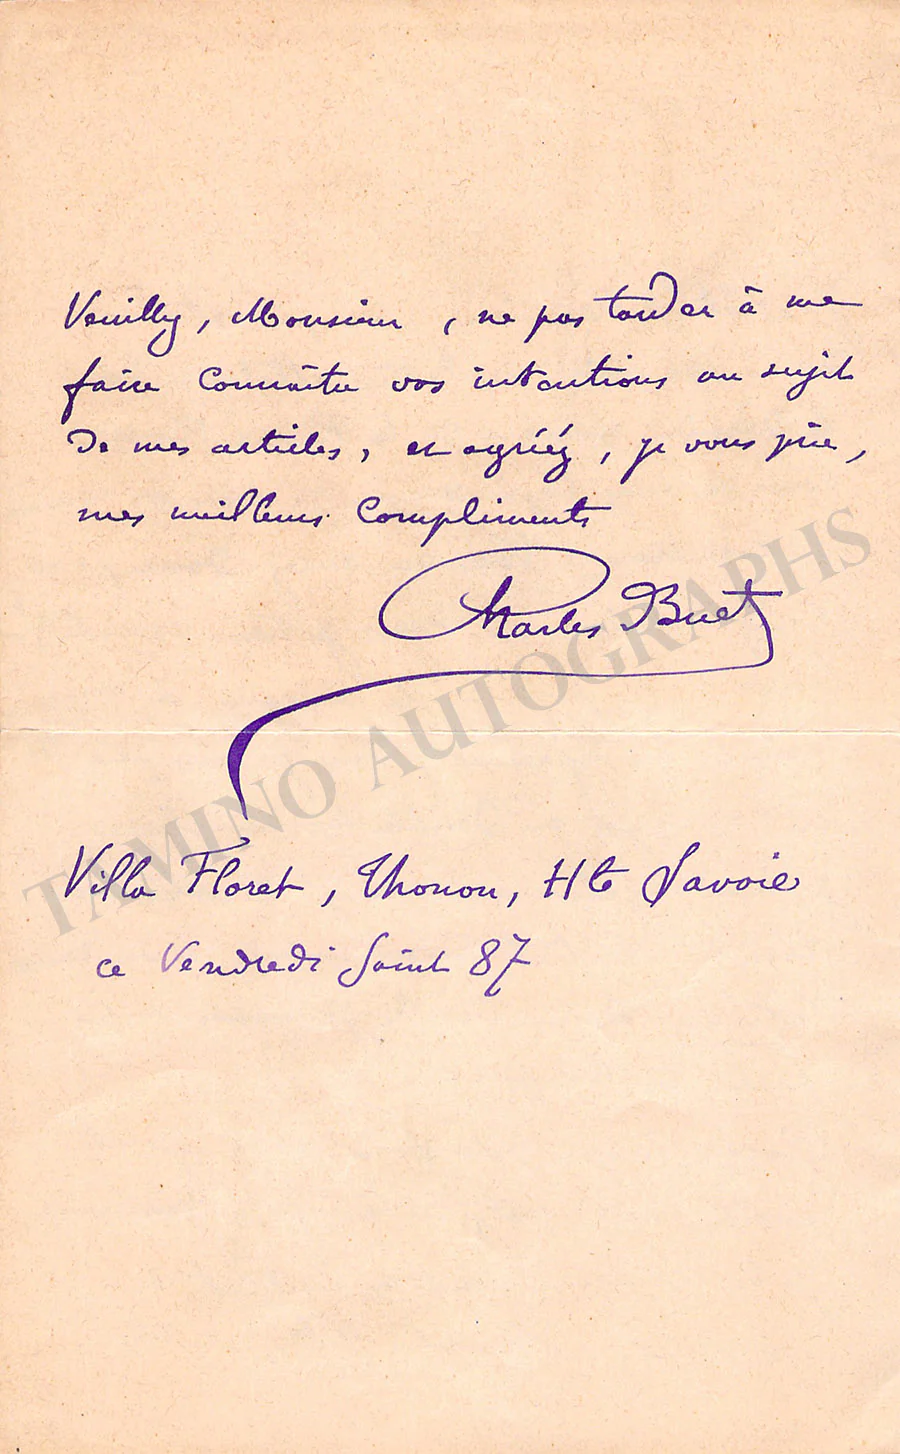 Veuillez, Monsieur, ne pas tarder à me
faire connaître vos intentions au sujet
de mes articles, et agréez, je vous prie,
mes meilleurs compliments
Charles Buet
TAMINO AUTOGRAPHS
Villa Floret, Thonon, Hte Savoie
ce Vendredi Saint 87